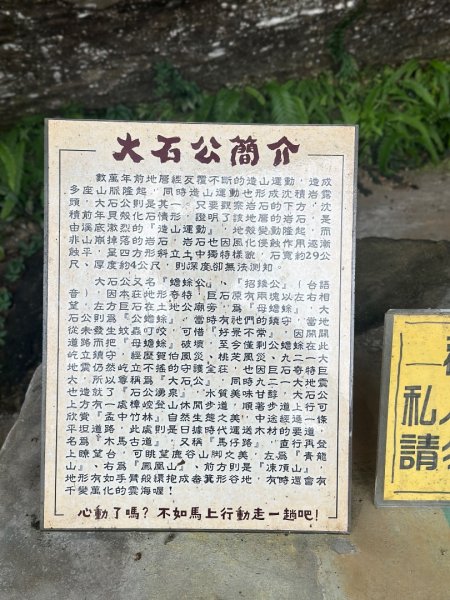 大石公簡介
數萬年前地層經反覆不斷的造山運動，造成
多座山脈隆起，同時造山運動也形成沈積岩露
頭，大石公則是其一。只要觀察岩石的下方，沈
積前年貝殼化石情形，證明了該地層的岩石，是
由溪底激烈的『造山運動』，地殼變動隆起，而
非山崩掉落的岩石，岩石也因風化侵蝕作用逐漸
蝕平，呈四方形斜立土中獨特樣貌，石寬約29公
尺、厚度約4公尺，則深度卻無法測知。
大石公又名『蟾蜍公』、『招錢公』（台語
音），因本莊地形奇特，巨石原有兩塊以左右相
望，左方巨石在土地公廟旁，為『母蟾蜍』，大
石公則為『公蟾蜍』，當時有祂們的鎮守，當地
從未發生蚊蟲叮咬，可惜『好景不常』，因開闢
道路而把『母蟾蜍』破壞，至今僅剩公蟾蜍在此
屹立鎮守，經歷賀伯風災、桃芝風災、九二一大
地震仍然屹立不搖的守護全莊，也因巨石奇特巨
大，所以尊稱為『大石公』，同時九二一大地震
也造就了『石公湧泉』，水質美味甘醇，大石公
上方有一處樟崆登山休閒步道，順著步道上行可
欣賞『孟中竹林』自然生態之美，中途經過一條
平坦道路，此處則是日據時代運送木材的要道，
名為『木馬古道』，又稱『馬仔路』，直行再登
上瞭望台，可眺望鹿谷山脚之美，左為『青龍
山』、右為『鳳凰山』、前方則是『凍頂山』，
地形有如手臂般環抱成畚箕形谷地，有時還會有
千變萬化的雲海喔！
心動了嗎？不如馬上行動走一趟吧！
私人
請